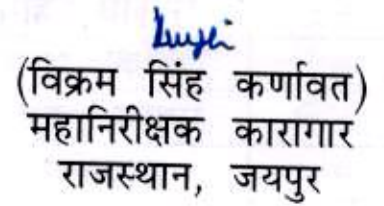 (विक्रम सिंह कर्णावत)
महानिरीक्षक कारागार
राजस्थान, जयपुर